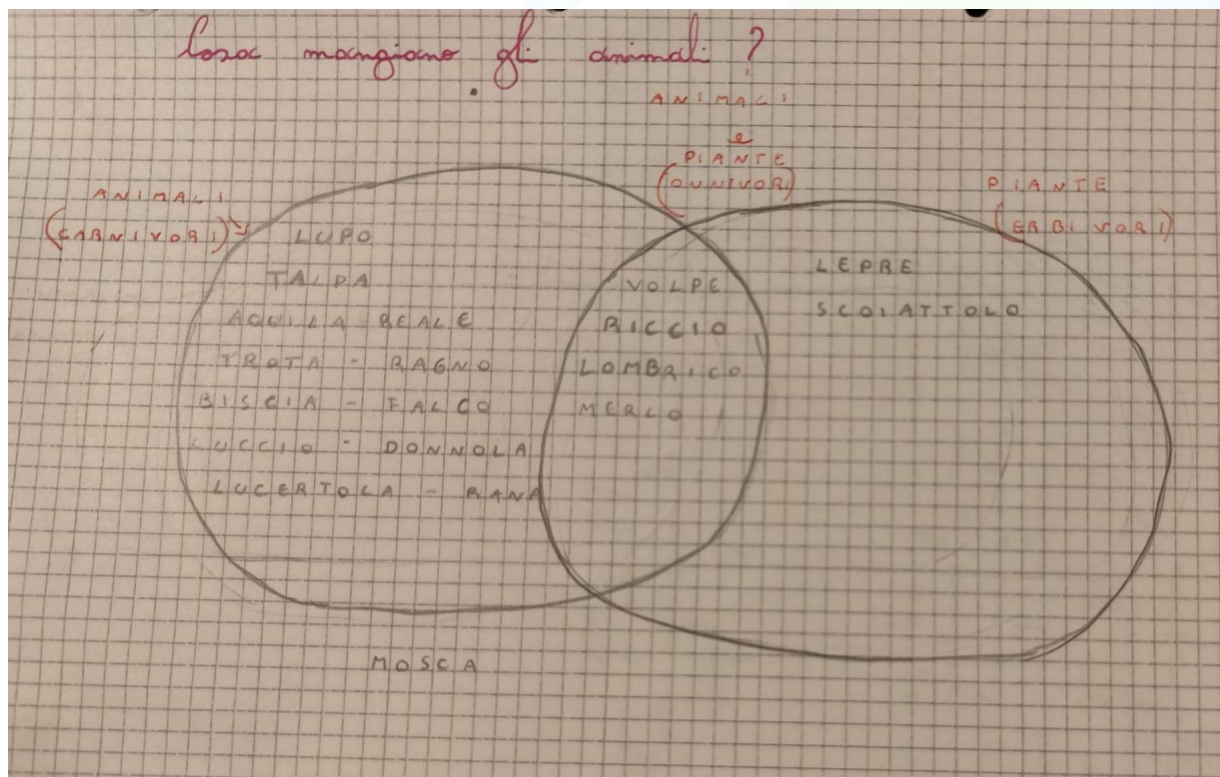 Cosa mangiano gli animali?
ANIMALI
e
PIANTE
(ONNIVORI)
ANIMALI
(CARNIVORI)
PIANTE
(ERBIVORI)
LUPO
TALPA
AQUILA REALE
TROTA - RAGNO
BISCIA - FALCO
LUCCIO - DONNOLA
LUCERTOLA - RANA
VOLPE
RICCIO
LOMBRICO
MERLO
LEPRE
SCOIATTOLO
MOSCA